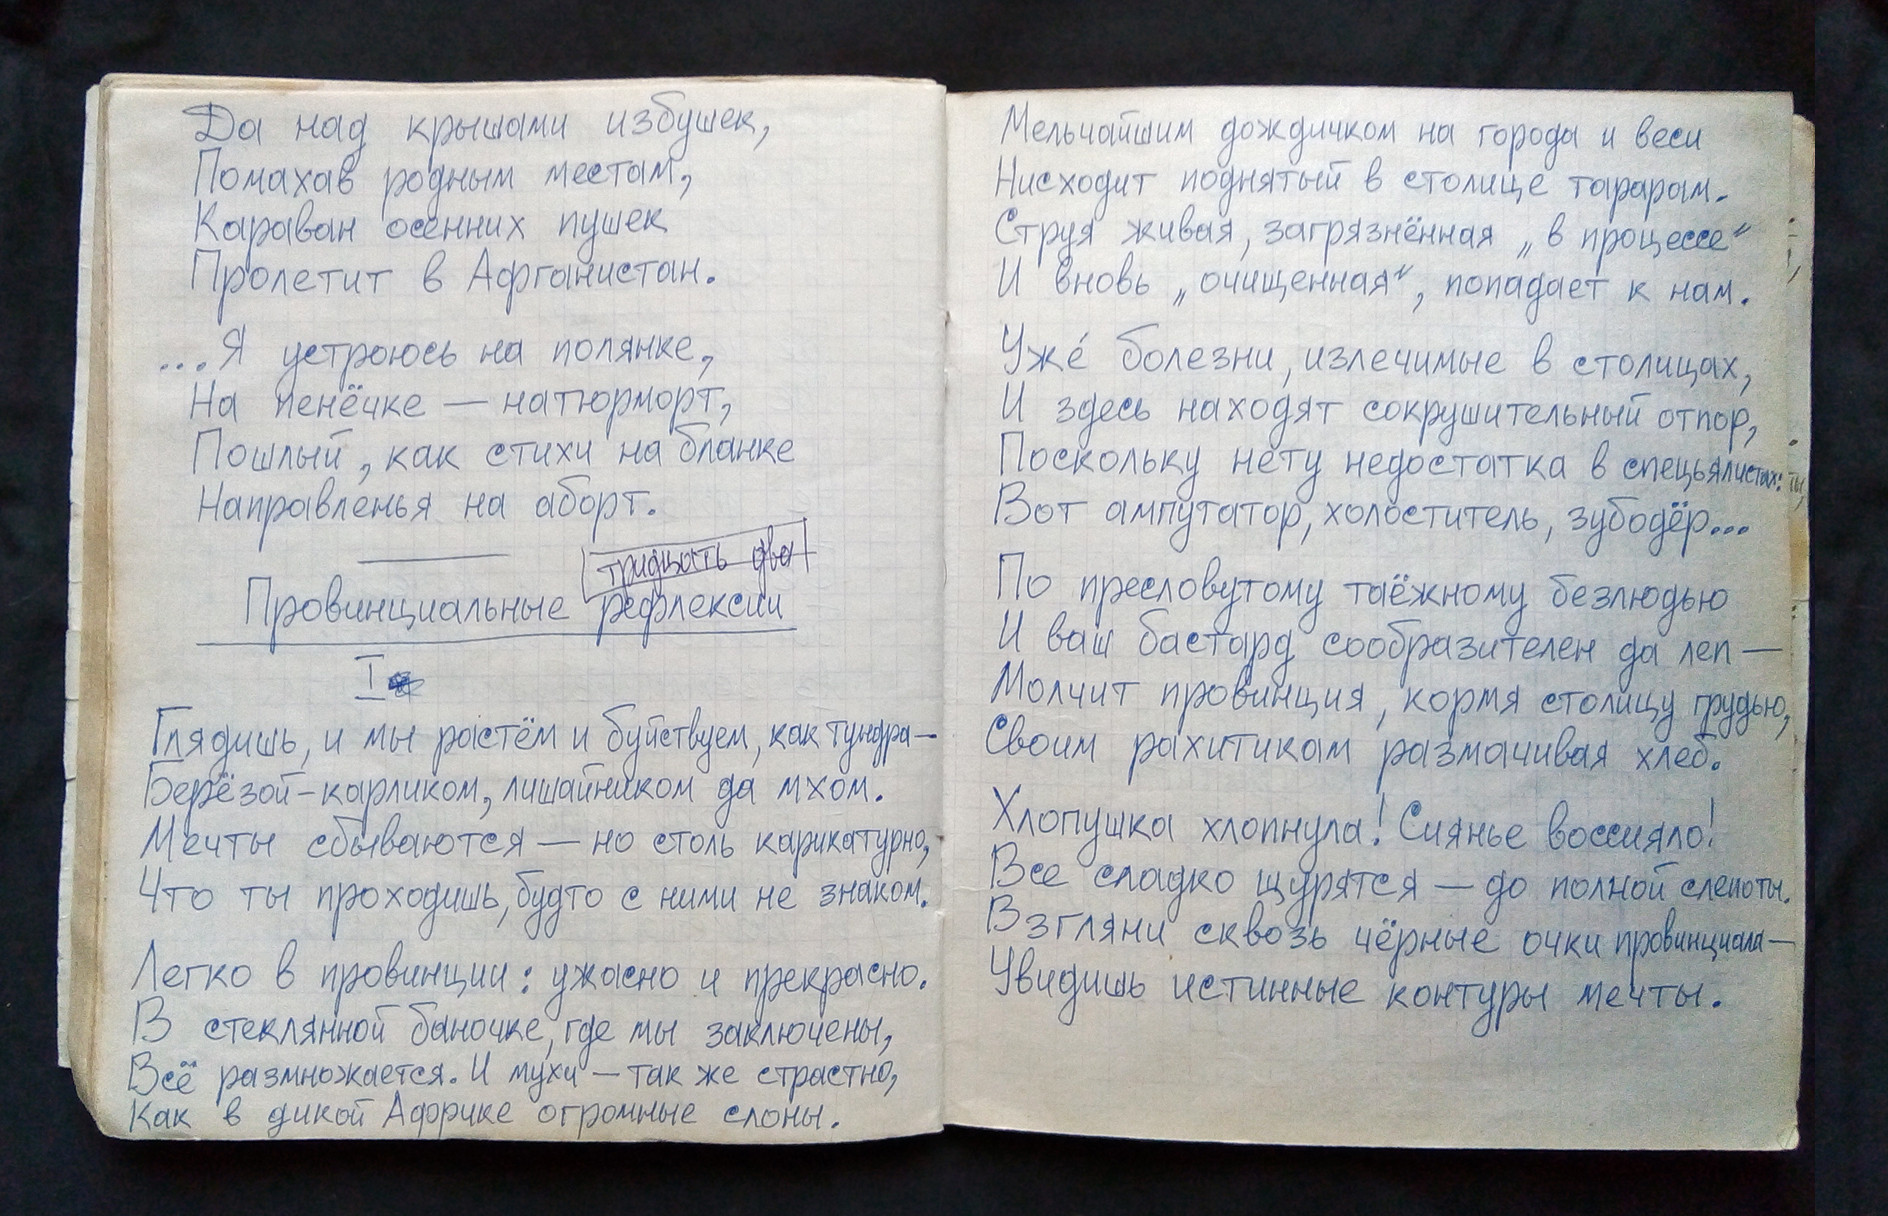 Да над крышами избушек,
Помахав родным местам,
Караван осенних пушек
Пролетит в Афганистан.
...Я устроюсь на полянке,
На пенёчке — натюрморт,
Пошлый, как стихи на бланке
Направленья на аборт.
тридцать два
Провинциальные рефлексии
I
Глядишь, и мы растём и буйствуем, как тундра —
Берёзой-карликом, лишайником да мхом.
Мечты сбываются — но столь карикатурно,
Что ты проходишь, будто с ними не знаком.
Легко в провинции: ужасно и прекрасно.
В стеклянной баночке, где мы заключены,
Всё размножается. И мухи — так же страстно,
Как в дикой Африке огромные слоны.
Мельчайшим дождичком на города и веси
Нисходит поднятый в столице тарарам.
Струя живая, загрязнённая „в процессе“
И вновь „очищенная“, попадает к нам.
Уже́ болезни, излечимые в столицах,
И здесь находят сокрушительный отпор,
Поскольку нету недостатка в спецьялистах:
Вот ампутатор, холоститель, зубодёр...
По пресловутому таёжному безлюдью
И ваш бастард сообразителен да леп —
Молчит провинция, кормя столицу грудью,
Своим рахитикам размачивая хлеб.
Хлопушка хлопнула! Сиянье воссияло!
Все сладко щурятся — до полной слепоты.
Взгляни сквозь чёрные очки провинциала —
Увидишь истинные контуры мечты.